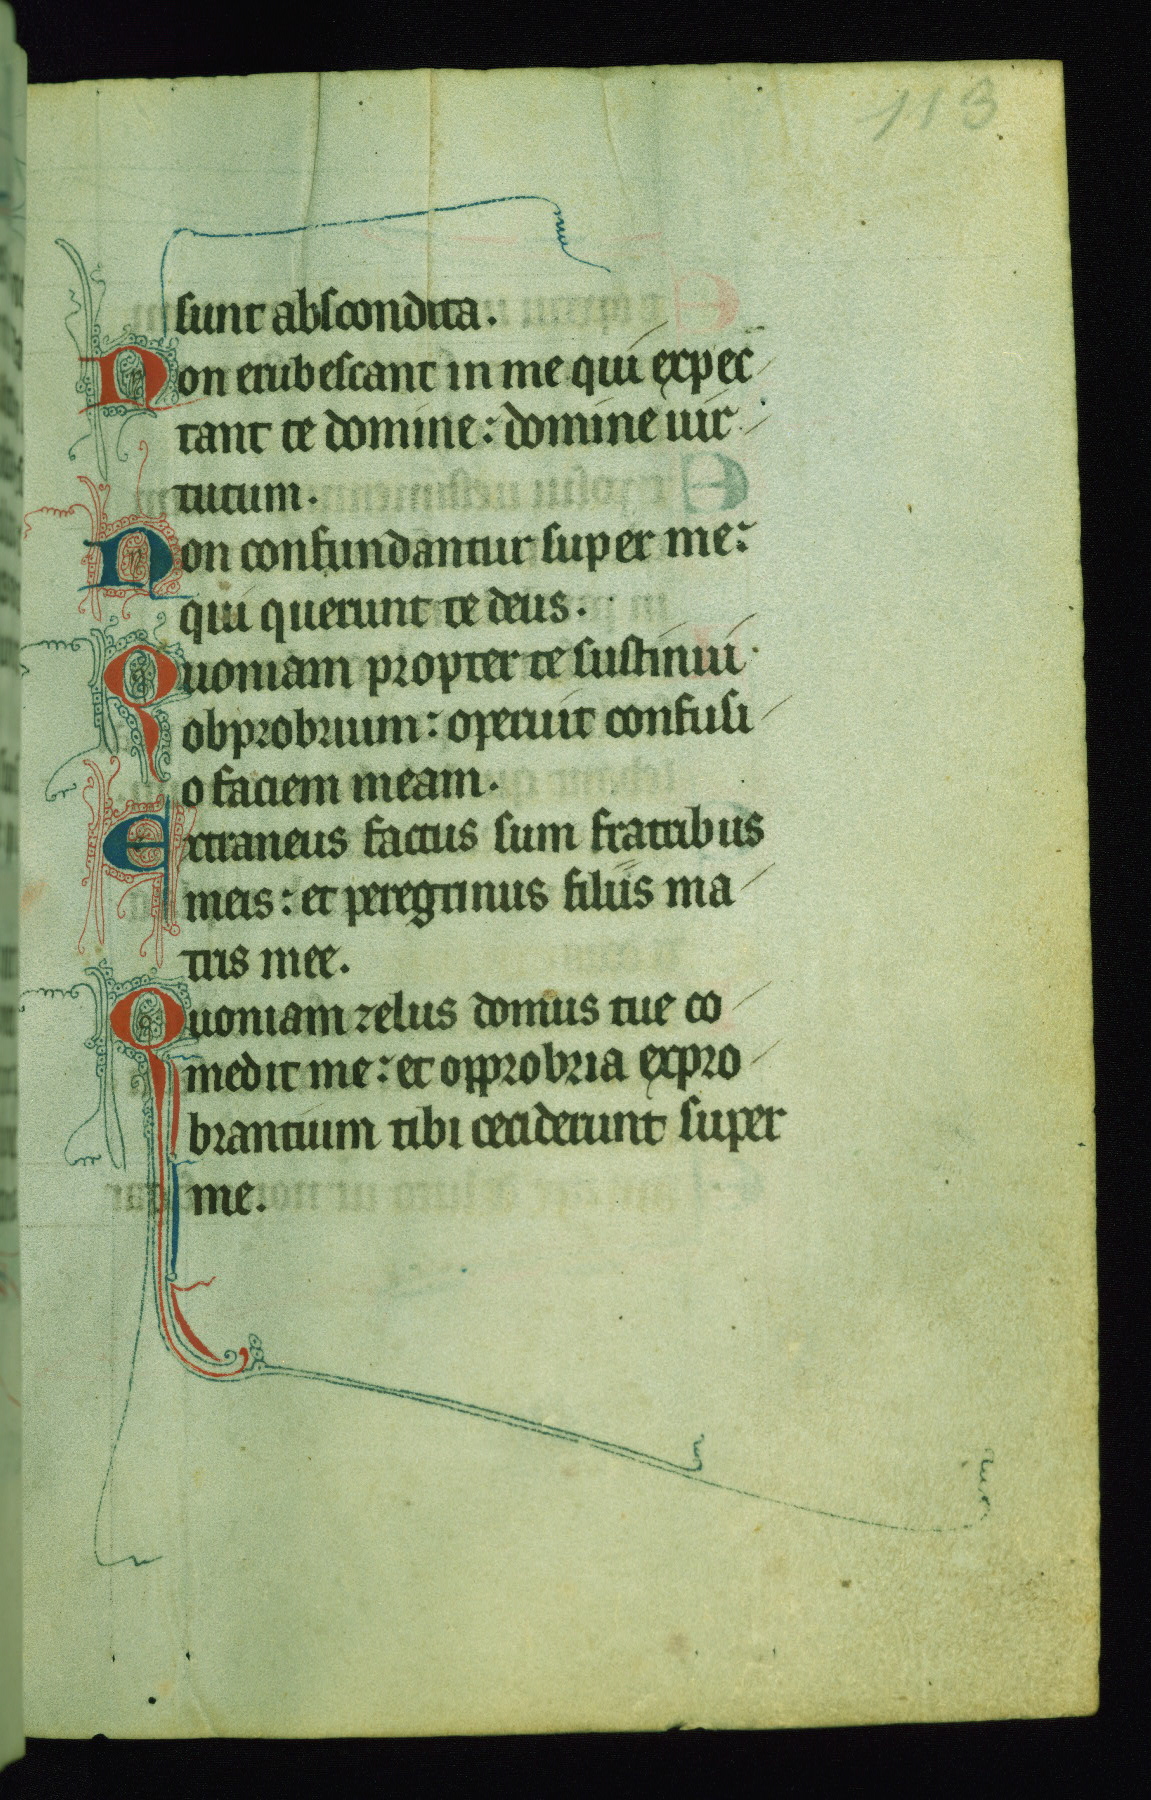 113
sunt abscondita.
Non erubescant in me qui expec
tant te domine: domine uir
tutum.
Non confundantur super me:
qui querunt te deus.
Quoniam propter te sustinui
obprobrium: operuit confusi
o faciem meam.
Extraneus factus sum fratribus
meis: et peregrinus filiis ma
tris mee.
Quoniam zelus domus tue co
medit me: et opprobria expro
brantium tibi ceciderunt super
me.